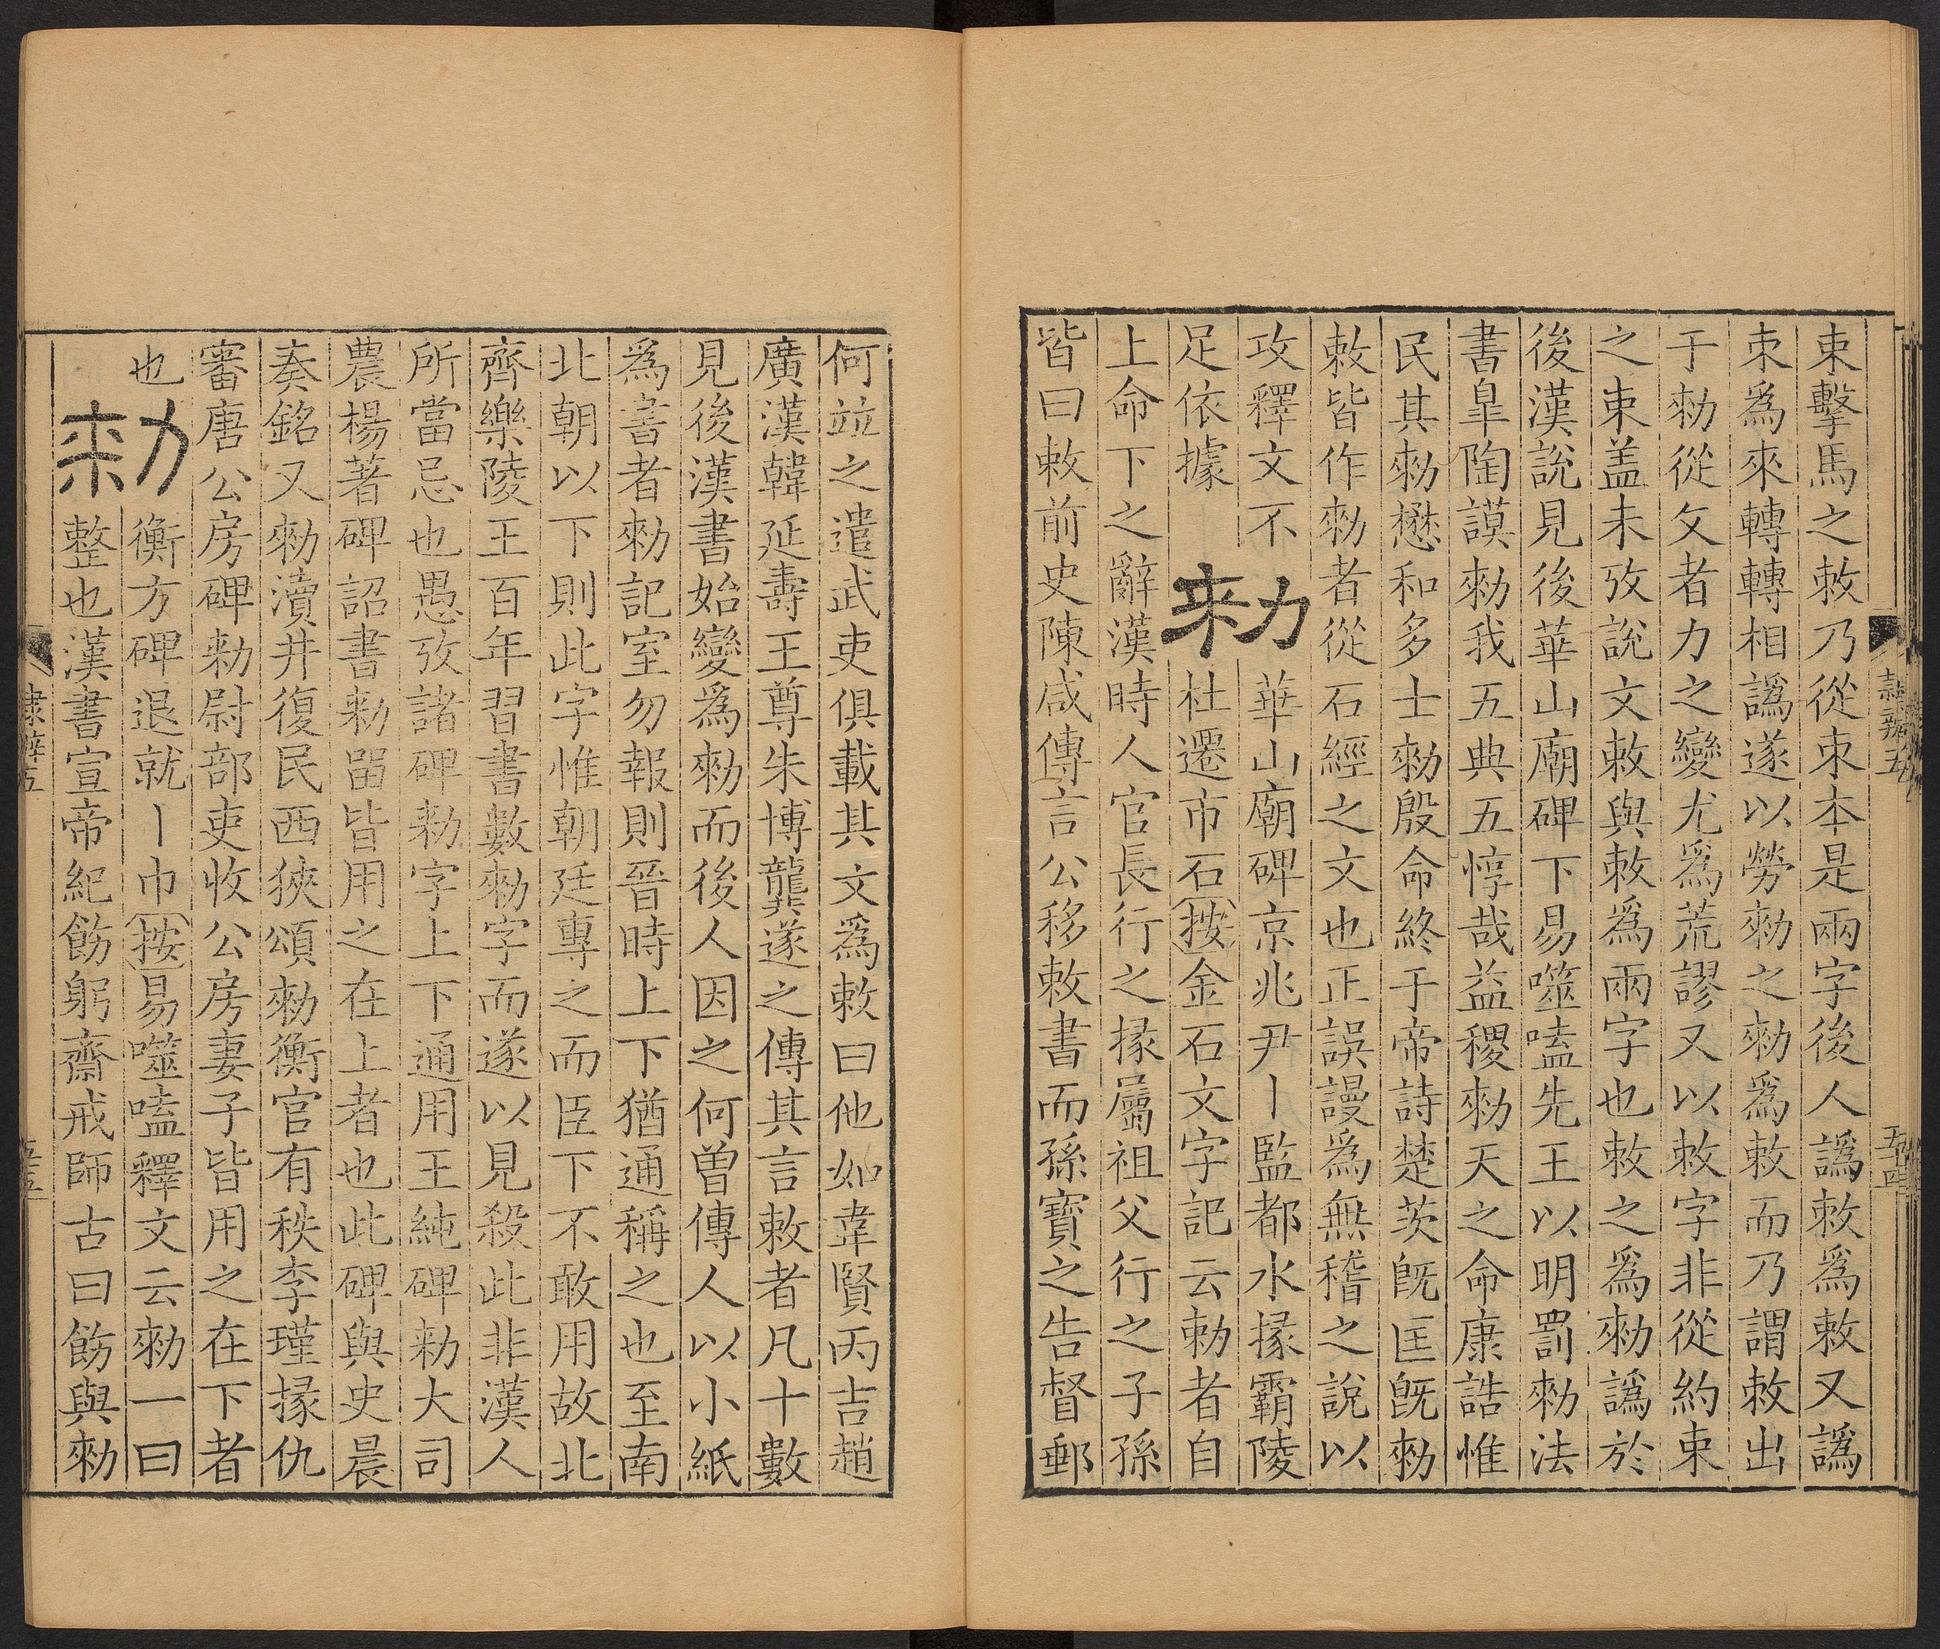 朿擊馬之敕乃從朿本是兩字後人譌敕爲敕又譌
朿爲來轉轉相譌遂以勞勑之勑爲敕而乃謂敕出
于勑從攵者力之變尤爲荒謬又以敕字非從約束
之束盖未攷說文敕與敕爲兩字也敕之爲勑譌於
後漢說見後華山廟碑下易噬嗑先王以明罰勑法
書皐陶謨勑我五典五惇哉益稷勑天之命康誥惟
民其勑懋和多士勑殷命終于帝詩楚茨旣匡旣勑
敕皆作勑者從石經之文也正誤謾爲無稽之說以
攻釋文不
足依據
勑
華山廟碑京兆尹丨監都水掾霸陵
杜遷市石按金石文字記云勑者自
上命下之辭漢時人官長行之掾屬祖父行之子孫
皆曰敕前史陳咸傳言公移敕書而孫寶之告督郵
何並之遣武吏俱載其文爲敕曰他如韋賢丙吉趙
廣漢韓延壽王尊朱博龔遂之傳其言敕者凡十數
見後漢書始變爲勑而後人因之何曽傳人以小紙
爲書者勑記室勿報則晉時上下猶通稱之也至南
北朝以下則此字惟朝廷專之而臣下不敢用故北
齊樂陵王百年習書數勑字而遂以見殺此非漢人
所當忌也愚攷諸碑勑字上下通用王純碑勑大司
農楊著碑詔書勑留皆用之在上者也此碑與史晨
奏銘又勑瀆井復民西狹頌勑衡官有秩李瑾掾仇
審唐公房碑勑尉部吏收公房妻子皆用之在下者
也
勑
衡方碑退就丨巾按易噬嗑釋文云勑一曰
整也漢書宣帝紀飭躬齋戒師古曰飭與勑
隸辨五
五四
隸辨五